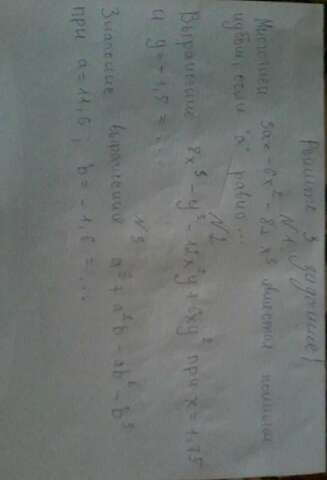 Решите 3 задания!
N1
Многочлен 3ax - 6x² - 8 x³ является полным
кубом, если "a" равно...
N2
Выражение 8x³ - y³ - 12x²y + 6xy² при x = 1,75
и y = -1,5 = ...
N3
Значение выражения a³ + a²b - ab² - b³
при a = 11,6; b = -1,6 = ...